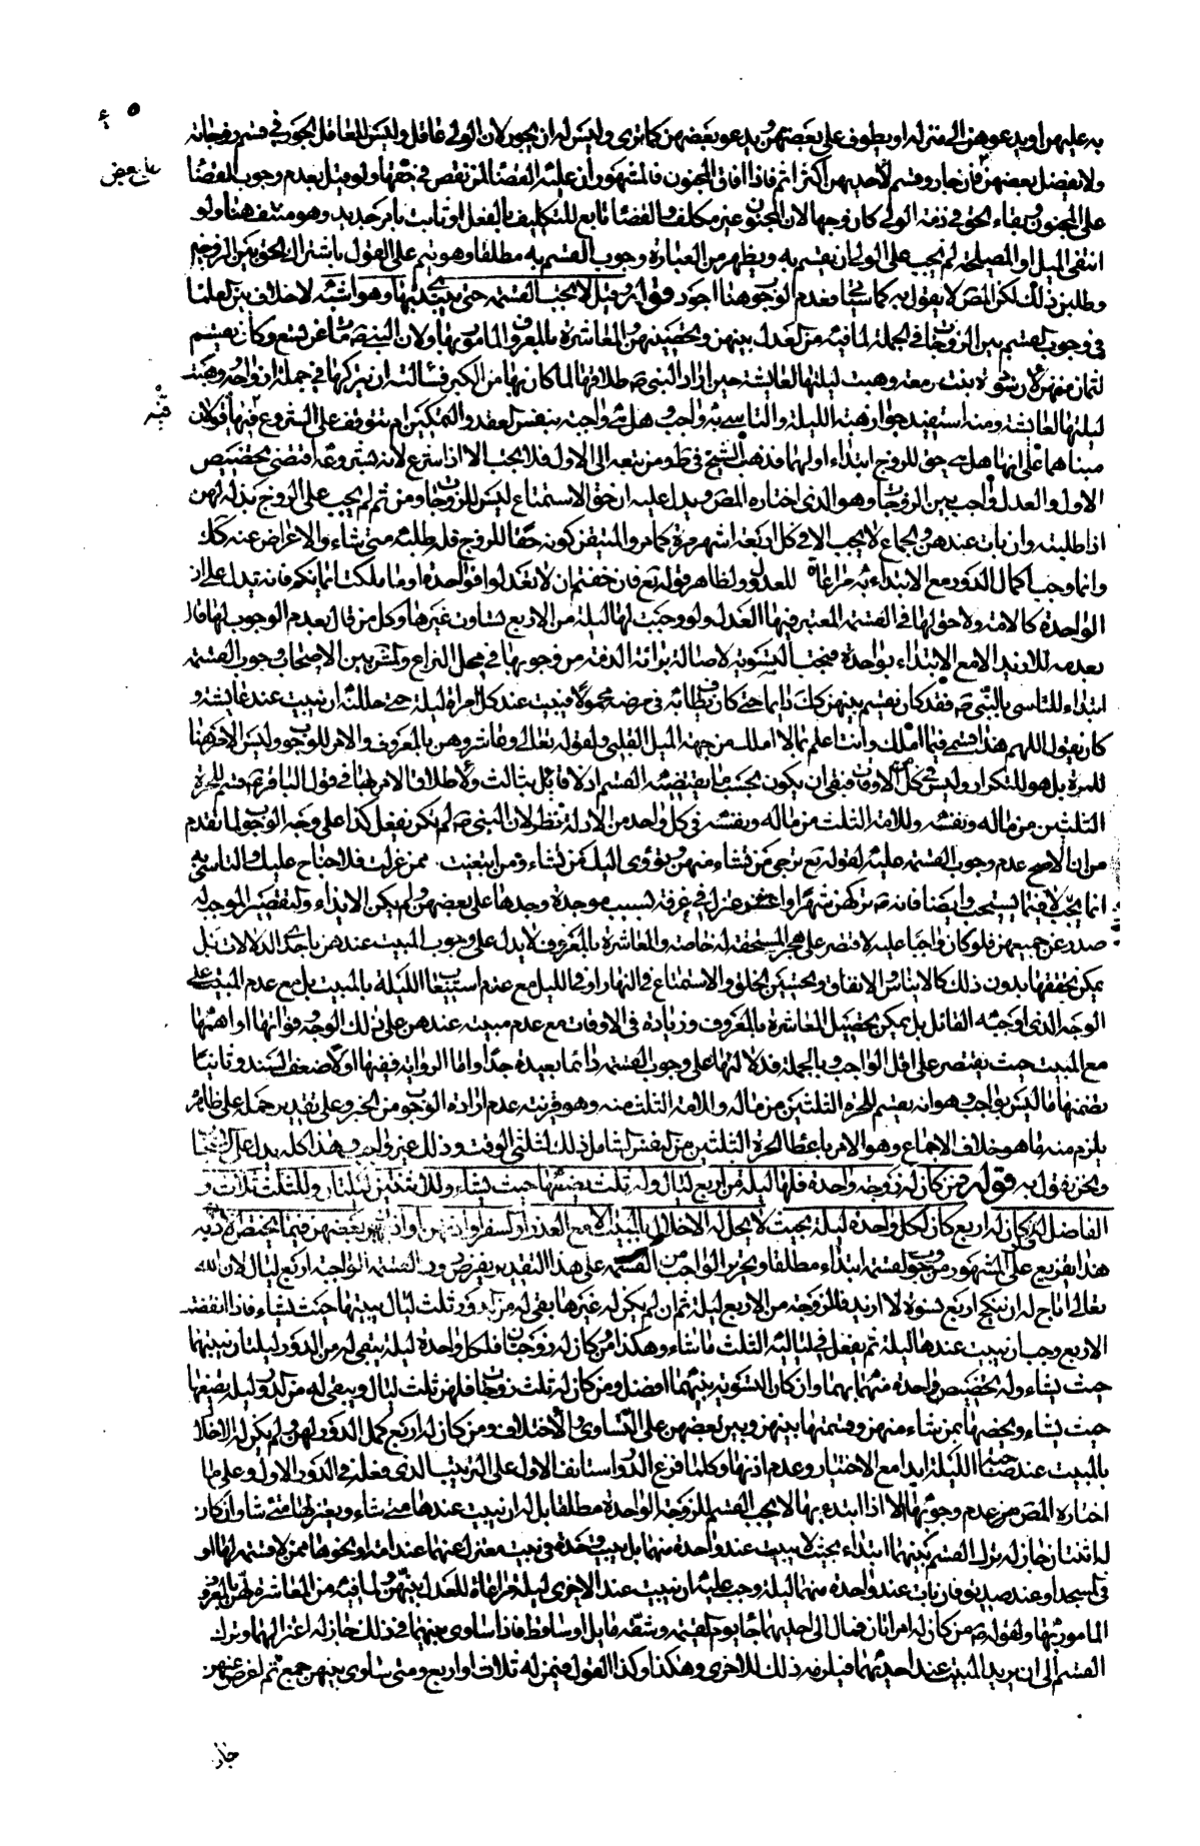 به عليهن او يدعوهن الى منزله او يطوف على بعضهن ويدعو بعضهن كما يرى وليس له ان يجور لان الولى عاقل وليس للعاقل الجور فى قسم زوجاته
ولا يفضل بعضهن فان جار وقسم لاحديهن اكثر اثم فاذا افاق المجنون فالمشهور ان عليه القضاء لمن نقص فى حقها ولو قيل بعدم وجوب القضاء
على المجنون وبقاء الحق فى ذمة الولى كان وجها لان المجنون غير مكلف والقضاء تابع للتكليف بالفعل او ثابت بامر جديد وهو منتف هنا ولو
انتفى الميل او المصلحة لم يجب على الولى ان يقسم به ويظهر من العبارة وجوب القسم به مطلقا وهو يتم على القول باشتراك الحق بين الزوجين
وطلبن ذلك لكن المص لا يقول به كما سياتى فعدم الوجوب هنا اجود قوله وقيل لا يجب القسمة حتى يبتدئ بها وهو اشبه لا خلاف بين علمائنا
فى وجوب القسم بين الزوجات فى الجملة لما فيه من العدل بينهن وتحصينهن والمعاشرة بالمعروف المامور بها ولان النبى ص مات عن تسع وكان يقسم
لثمان منهن لان سودة بنت زمعة وهبت ليلتها لعايشة حين اراد النبى ص طلاقها لما كان بها من الكبر فسالته ان يتركها فى جملة ازواجه وهبت
ليلتها لعايشة ومنه استفيد جواز هبة الليلة والتاسى به واجب وهل هى واجبة بنفس العقد والتمكين ام تتوقف على الشروع فيها قولان
مبناهما على انها هل هى حق للزوج ابتداء او لهما فذهب الشيخ فى ط ومن تبعه الى الاول فلا يجب الا اذا شرع لانه بشروعه اقتضى تخصيص
الاول والعدل واجب بين الزوجات وهو الذى اختاره المص ويدل عليه ان حق الاستمتاع ليس للزوجات ومن ثم لم يجب على الزوج بذله لهن
اذا طلبنه وان بات عندهن والجماع لا يجب الا فى كل اربعة اشهر مرة كما مر والمتيقن كونه حقا للزوج فله طلبه متى شاء والاعراض عنه كك
وانما وجب اكمال الدور مع الابتداء به مراعاة للعدل ولظاهر قوله تع فان خفتم ان لا تعدلوا فواحدة او ما ملكت ايمانكم فانه يدل على ان
الواحدة كالامة ولا حق لها فى القسمة المعتبر فيها العدل ولو وجبت لها ليلة من الاربع لساوت غيرها وكل من قال بعدم الوجوب لها قال
بعدمه للازيد الا مع الابتداء بواحدة فيجب التسوية لاصالة براءة الذمة من وجوبها فى محل النزاع والمشهور بين الاصحاب وجوب القسمة
ابتداء للتاسى بالنبى ص فقد كان يقسم بينهن كك دايما حتى كان يطاف به فى مرضه محمولا فيبيت عند كل امراة ليلة حتى حللنه ان يبيت عند عايشة و
كان يقول اللهم هذا قسمى فيما املك وانت اعلم بما لا املك من جهة الميل القلبى ولقوله تعالى وعاشروهن بالمعروف والامر للوجوب وليس الامر هنا
للمرة بل هو للتكرار وليس فى كل الاوقات فبقى ان يكون بحسب ما يقتضيه القسم اذ لا قائل بثالث ولاطلاق الامر بها فى قول الباقر ع قسم للحرة
الثلثين من ماله ونفسه وللامة الثلث من ماله ونفسه وفى كل واحد من الادلة نظر لان النبى ص لم يكن يفعل كذا على وجه الوجوب لما تقدم
من ان الاصح عدم وجوب القسمة عليه لقوله تع ترجى من تشاء منهن وتؤوى اليك من تشاء ومن ابتغيت ممن عزلت فلا جناح عليك والتاسى به
انما يجب لا فيما يستحب وايضا فانه ص تركهن شهرا واعتزل فى غرفة بسبب موجدة وجدها على بعضهن ولم يكن الايذاء والتقصير الموجد له
صدر عن جميعهن فلو كان واجبا عليه لاقتصر على هجر المستحقة له خاصة والمعاشرة بالمعروف لا يدل على وجوب المبيت عندهن باحدى الدلالات بل
يمكن تحققها بدون ذلك كالايناس والانفاق وتحسين الخلق والاستمتاع فى النهار او فى الليل مع عدم استيعاب الليلة بالمبيت بل مع عدم المبيت على
الوجه الذى اوجبه القائل بل يمكن تحصيل المعاشرة بالمعروف وزيادة فى الاوقات مع عدم مبيته عندهن على تلك الوجوه وفواتها او اهمها
مع المبيت حيث يقتصر على اقل الواجب وبالجملة فدلالتها على وجوب القسمة دائما بعيدة جدا واما الرواية ففيها اولا ضعف السند وثانيا
تضمنها ما ليس بواجب وهو انه يقسم للحرة الثلثين من ماله والامة الثلث منه وهو قرينة عدم ارادة الوجوب من الخبر وعلى تقدير حمله على ظاهره
يلزم منه ما هو خلاف الاجماع وهو الامر باعطاء الحرة الثلثين من النفس الشامل ذلك لثلثى الوقت وذلك غير واجب وهذا كله يدل على الاستحباب
ونحن نقول به قوله فمن كان له زوجة واحدة فلها ليلة من اربع ليال وله ثلث يضعها حيث يشاء وللاثنتين ليلتان وللثلث ثلاث و
الفاضل له ولو كان له اربع كان لكل واحدة ليلة بحيث لا يحل له الاخلال بالمبيت الا مع العذر او السفر او اذنهن او اذن بعضهن فيما يختص الاذن به
هذا تفريع على المشهور من وجوب القسمة ابتداء مطلقا وتحرير الواجب من القسمة على هذا التقدير يفرض دور القسمة الواجبة اربع ليال لان الله
تعالى اباح له ان ينكح اربع نسوة لا ازيد فللزوجة من الاربع ليلة ثم ان لم يكن له غيرها بقى له من الدور ثلث ليال يبيتها حيث يشاء فاذا انقضت
الاربع وجب ان يبيت عندها ليلة ثم يفعل فى لياليه الثلث ما شاء وهكذا ومن كان له زوجتان فلكل واحدة ليلة يبقى له من الدور ليلتان يبيتهما
حيث يشاء وله تخصيص واحدة منهما بهما وان كان التسوية بينهما افضل ومن كان له ثلث زوجات فلهن ثلث ليال ويبقى له من الدور ليلة يضعها
حيث يشاء ويخصها بمن شاء منهن وقسمتها بينهن وبين بعضهن على التساوى والاختلاف ومن كان له اربع كمل الدور لهن ولم يكن له الاخلال
بالمبيت عند صاحبة الليلة ابدا مع الاختيار وعدم اذنها وكلما فرغ الدور استانف الاول على الترتيب الذى فعله فى الدور الاول وعلى ما
اختاره المص من عدم وجوبها الا اذا ابتدء بها لا يجب القسم للزوجة الواحدة مطلقا بل له ان يبيت عندها متى شاء ويعتزلها متى شاء وان كان
له اثنتان جاز له ترك القسم بينهما ابتداء بحيث لا يبيت عند واحدة منهما بل يبيت وحده فى بيت معتزل عنهما عند امته ونحوها ممن لا قسمة لها او
فى المسجد او عند صديق فان بات عند واحدة منهما ليلة وجب عليه ان يبيت عند الاخرى ليلة مراعاة للعدل بينهن ولما فيه من المعاشرة لهن بالمعروف
المامور بها ولقوله ص من كان له امراتان فمال الى احديهما جاء يوم القيمة وشقه مايل او ساقط فاذا ساوى بينهما فى ذلك جاز له اعتزالهما وترك
القسم الى ان يريد المبيت عند احديهما فيلزمه ذلك للاخرى وهكذا وكذا القول فيمن له ثلاث او اربع ومتى ساوى بينهن جمع ثم اعرض عنهن
جاز